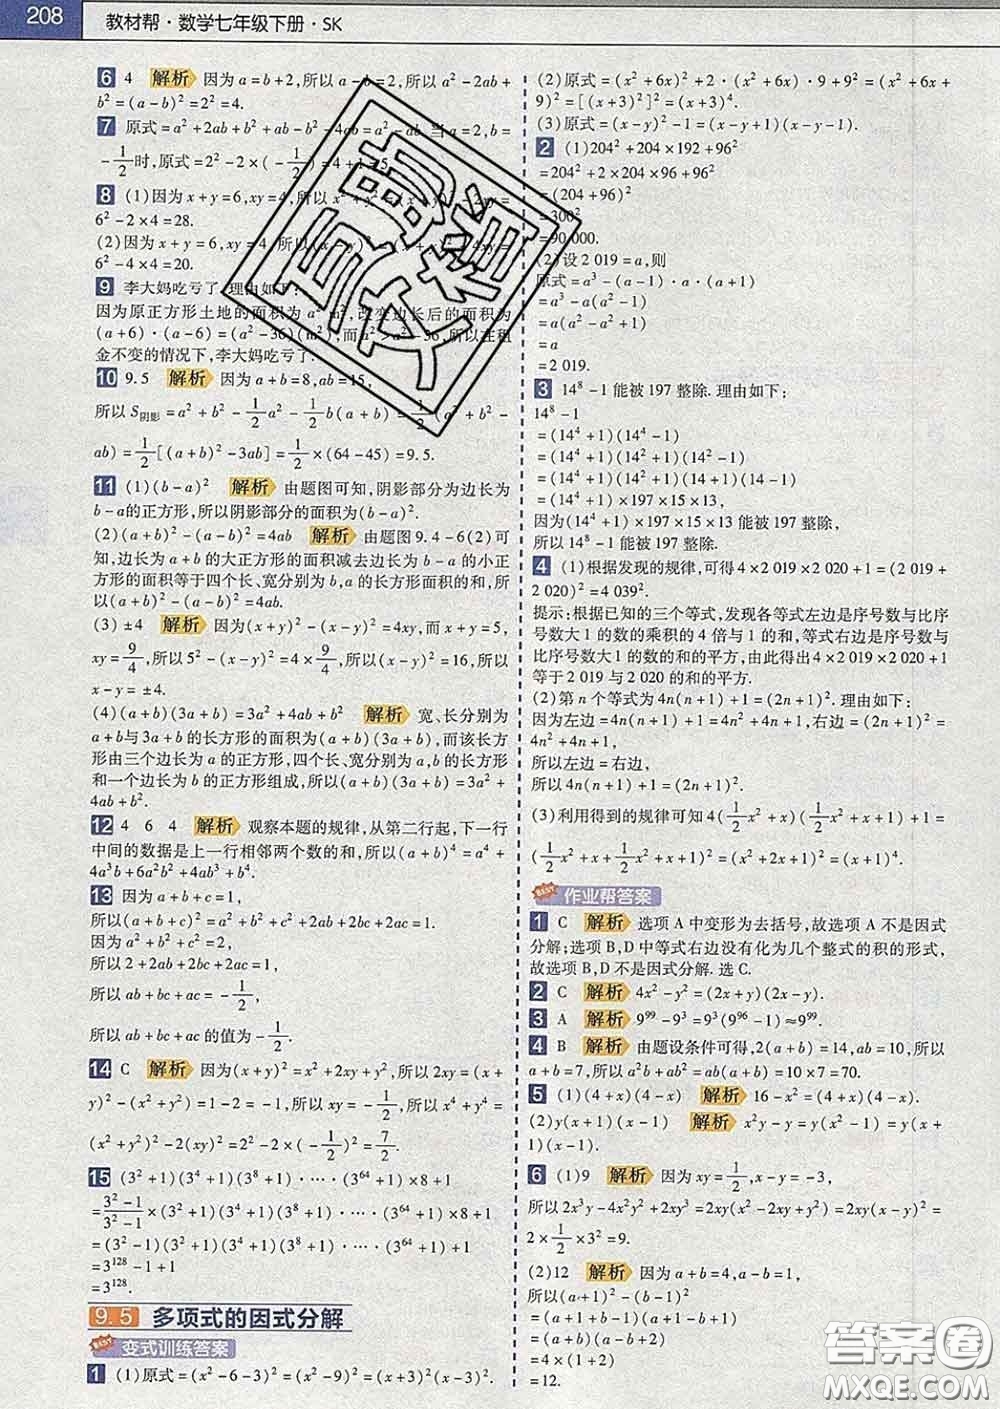 208
教材帮·数学七年级下册·SK
6 4 解析 因为a=b+2,所以a-b=2,所以a²-2ab+
b²=(a-b)²=2²=4.
7 原式=a²+2ab+b²+ab-b²-4ab=a²-ab.当a=2,b=
-1/2时,原式=2²-2×(-1/2)=4+1=5.
8 (1)因为x+y=6,xy=4,所以x²+y²=
6²-2×4=28.
(2)因为x+y=6,xy=4,所以(x-y)²
6²-4×4=20.
9 李大妈吃亏了.理由如下:
因为原正方形土地的面积为a² m²,改变边长后的面积为
(a+6)·(a-6)=(a²-36)(m²),而a²>a²-36,所以在租
金不变的情况下,李大妈吃亏了.
10 9.5 解析 因为a+b=8,ab=15,
所以S阴影=a²+b²-1/2a²-1/2b(a+b)=1/2(a²+b²-
ab)=1/2[(a+b)²-3ab]=1/2×(64-45)=9.5.
11 (1)(b-a)² 解析 由题图可知,阴影部分为边长为
b-a的正方形,所以阴影部分的面积为(b-a)².
(2)(a+b)²-(a-b)²=4ab 解析 由题图9.4-6(2)可
知,边长为a+b的大正方形的面积减去边长为a-b的小正
方形的面积等于四个长、宽分别为b,a的长方形面积的和,所
以(a+b)²-(a-b)²=4ab.
(3)±4 解析 因为(x+y)²-(x-y)²=4xy,而x+y=5,
xy=9/4,所以5²-(x-y)²=4×9/4,所以(x-y)²=16,所以
x-y=±4.
(4)(a+b)(3a+b)=3a²+4ab+b² 解析 宽、长分别为
a+b与3a+b的长方形的面积为(a+b)(3a+b),而该长方
形由三个边长为a的正方形,四个长、宽分别为a,b的长方形
和一个边长为b的正方形组成,所以(a+b)(3a+b)=3a²+
4ab+b².
12 4 6 4 解析 观察本题的规律,从第二行起,下一行
中间的数据是上一行相邻两个数的和,所以(a+b)⁴=a⁴+
4a³b+6a²b²+4ab³+b⁴.
13 因为a+b+c=1,
所以(a+b+c)²=a²+b²+c²+2ab+2bc+2ac=1.
因为a²+b²+c²=2,
所以2+2ab+2bc+2ac=1,
所以ab+bc+ac=-1/2,
所以ab+bc+ac的值为-1/2.
14 C 解析 因为(x+y)²=x²+2xy+y²,所以2xy=(x+
y)²-(x²+y²)=1-2=-1,所以xy=-1/2,所以x⁴+y⁴=
(x²+y²)²-2(xy)²=2²-2×(-1/2)²=7/2.
15 (3²+1)(3⁴+1)(3⁸+1)·…·(3⁶⁴+1)×8+1
=(3²-1)/(3²-1)×(3²+1)(3⁴+1)(3⁸+1)·…·(3⁶⁴+1)×8+1
=(3²-1)(3²+1)(3⁴+1)(3⁸+1)·…·(3⁶⁴+1)+1
=3¹²⁸-1+1
=3¹²⁸.
9.5 多项式的因式分解
BEST 变式训练答案
1 (1)原式=(x²-6-3)²=(x²-9)²=(x+3)²(x-3)².
(2)原式=(x²+6x)²+2·(x²+6x)·9+9²=(x²+6x+
9)²=[(x+3)²]²=(x+3)⁴.
(3)原式=(x-y)²-1=(x-y+1)(x-y-1).
2 (1)204²+204×192+96²
=204²+2×204×96+96²
=(204+96)²
=300²
=90 000.
(2)设2 019=a,则
原式=a³-(a-1)·a·(a+1)
=a³-a(a²-1)
=a(a²-a²+1)
=a
=2 019.
3 14⁸-1能被197整除.理由如下:
14⁸-1
=(14⁴+1)(14⁴-1)
=(14⁴+1)(14²+1)(14²-1)
=(14⁴+1)(14²+1)(14+1)(14-1)
=(14⁴+1)×197×15×13,
因为(14⁴+1)×197×15×13能被197整除,
所以14⁸-1能被197整除.
4 (1)根据发现的规律,可得4×2 019×2 020+1=(2 019+
2 020)²=4 039².
提示:根据已知的三个等式,发现各等式左边是序号数与比序
号数大1的数的乘积的4倍与1的和,等式右边是序号数与
比序号数大1的数的和的平方,由此得出4×2 019×2 020+1
等于2 019与2 020的和的平方.
(2)第n个等式为4n(n+1)+1=(2n+1)².理由如下:
因为左边=4n(n+1)+1=4n²+4n+1,右边=(2n+1)²=
4n²+4n+1,
所以左边=右边,
所以4n(n+1)+1=(2n+1)².
(3)利用得到的规律可知4(1/2x²+x)(1/2x²+x+1)+1=
(1/2x²+x+1/2x²+x+1)²=(x²+2x+1)²=(x+1)⁴.
BEST 作业帮答案
1 C 解析 选项A中变形为去括号,故选项A不是因式
分解;选项B,D中等式右边没有化为几个整式的积的形式,
故选项B,D不是因式分解.选C.
2 C 解析 4x²-y²=(2x+y)(2x-y).
3 A 解析 9⁹⁹-9³=9³(9⁹⁶-1)≈9⁹⁹.
4 B 解析 由题设条件可得,2(a+b)=14,ab=10,所以
a+b=7,所以a²b+ab²=ab(a+b)=10×7=70.
5 (1)(4+x)(4-x) 解析 16-x²=(4+x)(4-x).
(2)y(x+1)(x-1) 解析 x²y-y=y(x²-1)=y(x+
1)(x-1).
6 (1)9 解析 因为xy=1/2,x-y=-3,
所以2x³y-4x²y²+2xy³=2xy(x²-2xy+y²)=2xy(x-y)²=
2×1/2×3²=9.
(2)12 解析 因为a+b=4,a-b=1,
所以(a+1)²-(b-1)²
=(a+1+b-1)(a+1-b+1)
=(a+b)(a-b+2)
=4×(1+2)
=12.
答案圈
MXQE.COM